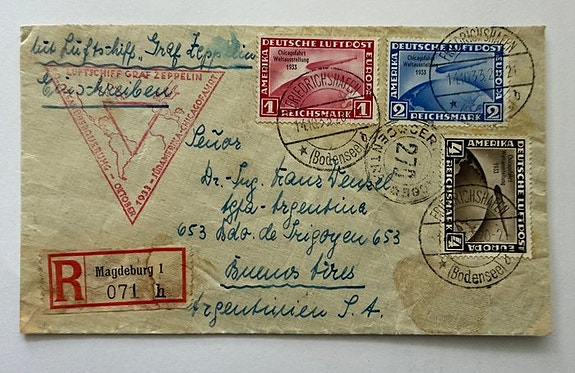 mit Luftschiff "Graf Zeppelin"
Einschreiben
LUFTSCHIFF GRAF ZEPPELIN
OKTOBER 1933 - SÜDAMERIKA-CHICAGOFAHRT
DEUTSCHE LUFTPOST
AMERIKA
EUROPA
Chicagofahrt
Weltausstellung
1933
1 REICHSMARK 1
DEUTSCHE LUFTPOST
AMERIKA
EUROPA
Chicagofahrt
Weltausstellung
1933
2 REICHSMARK 2
DEUTSCHE LUFTPOST
EUROPA
Chicagofahrt
Weltausstellung
1933
4 REICHSMARK 4
FRIEDRICHSHAFEN
(Bodensee)
FRIEDRICHSHAFEN
FRIEDRICHSHAFEN
(Bodensee)
277
Señor
Dr.-Ing. Hans Wenzel
Agfa-Argentina
653 Bdo. de Yrigoyen 653
Buenos Aires
Argentinien S.A.
R Magdeburg 1
071 h